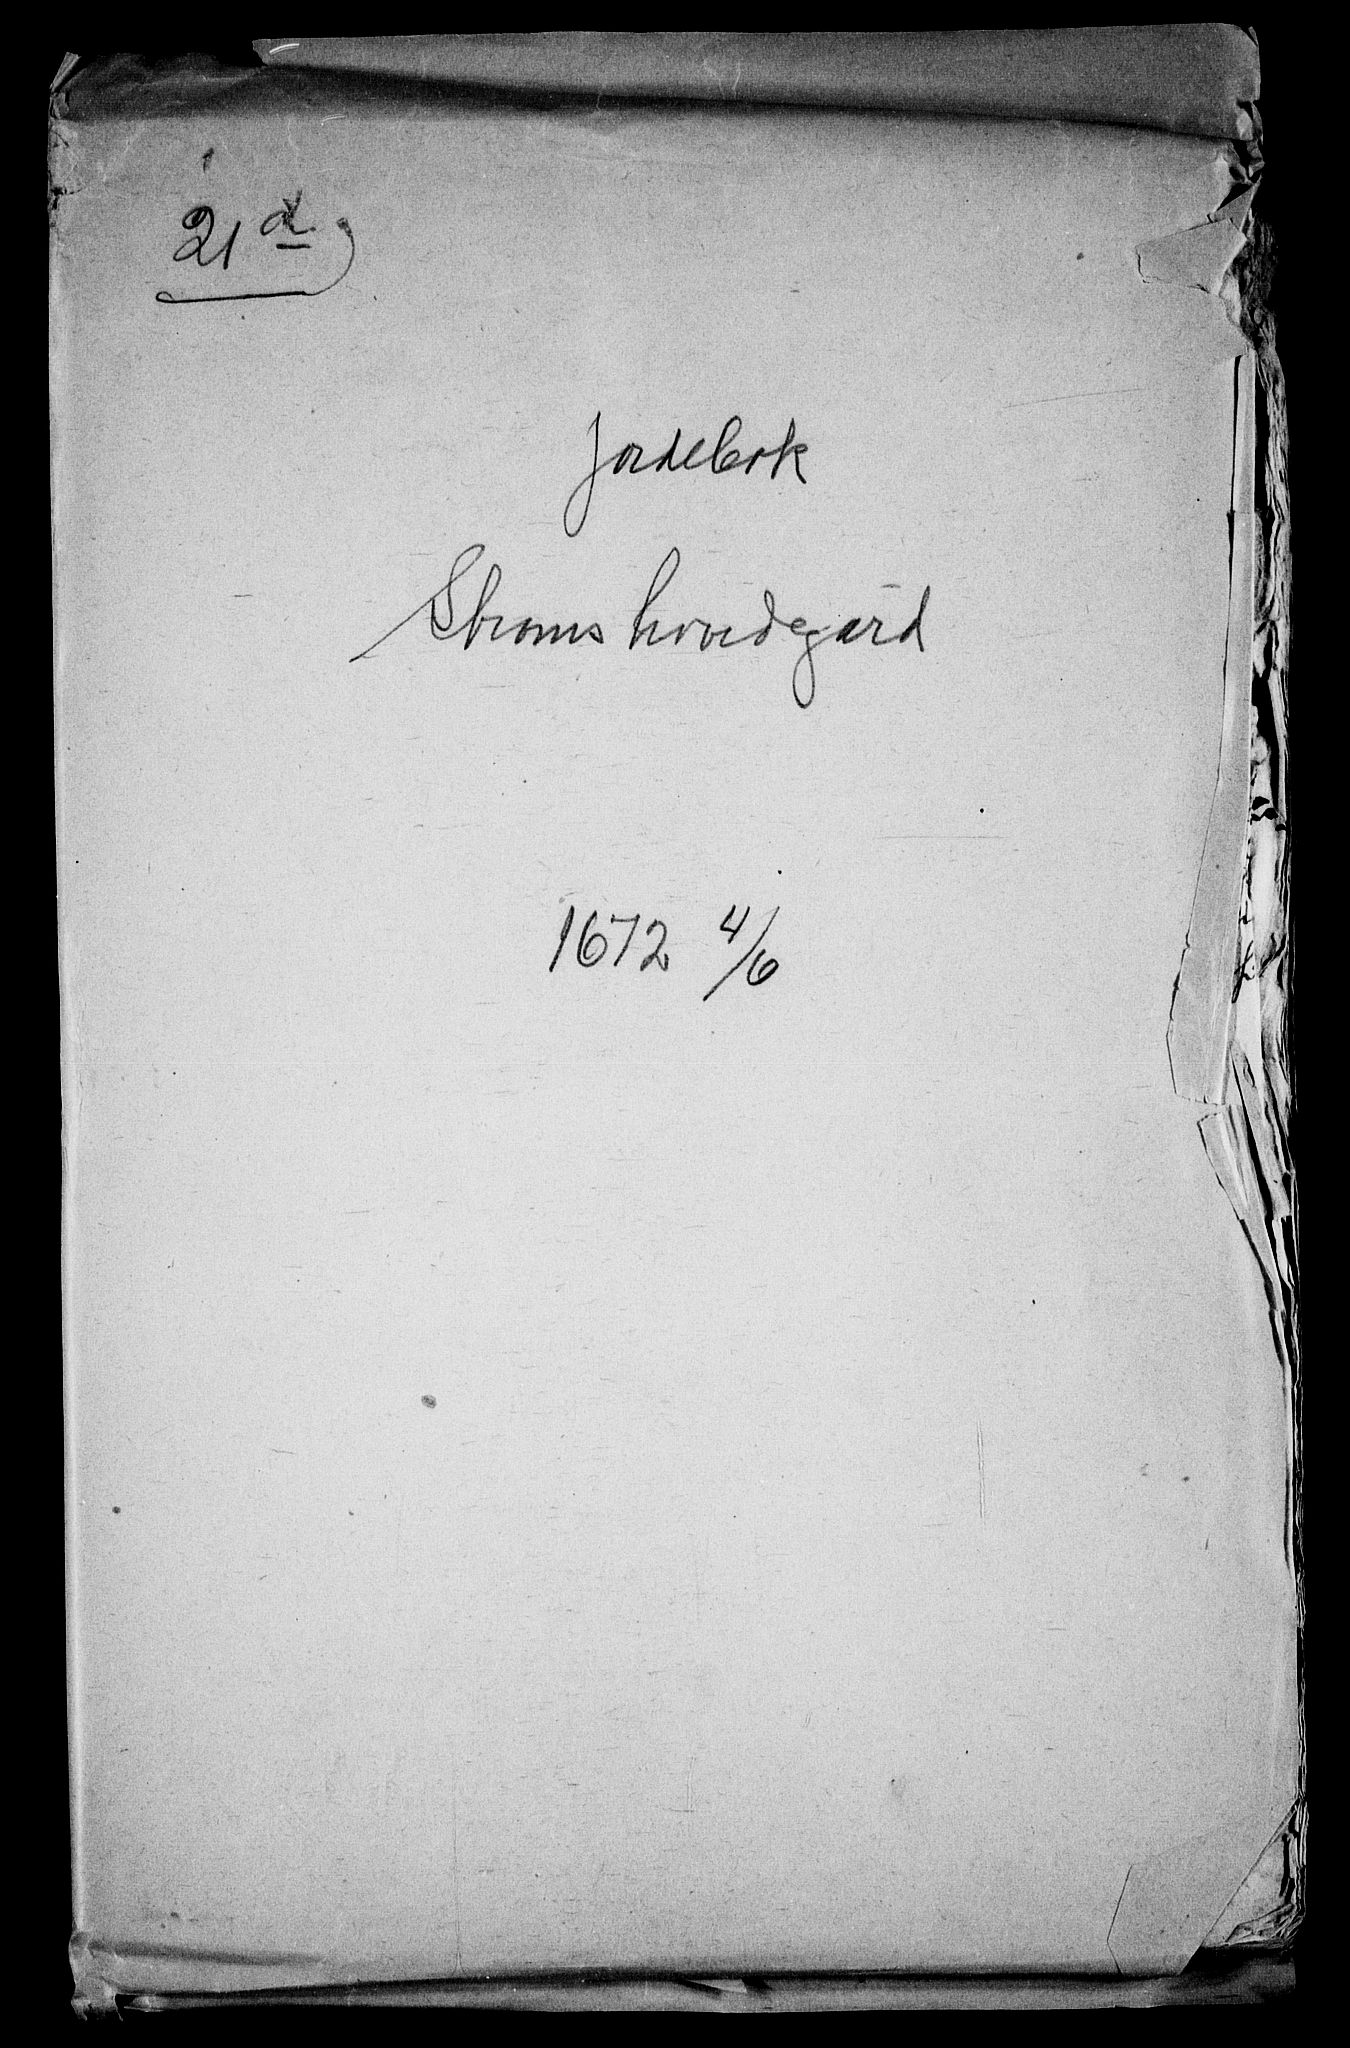 21 d
Jordebok
Strøms hovedgård
1672 4/6